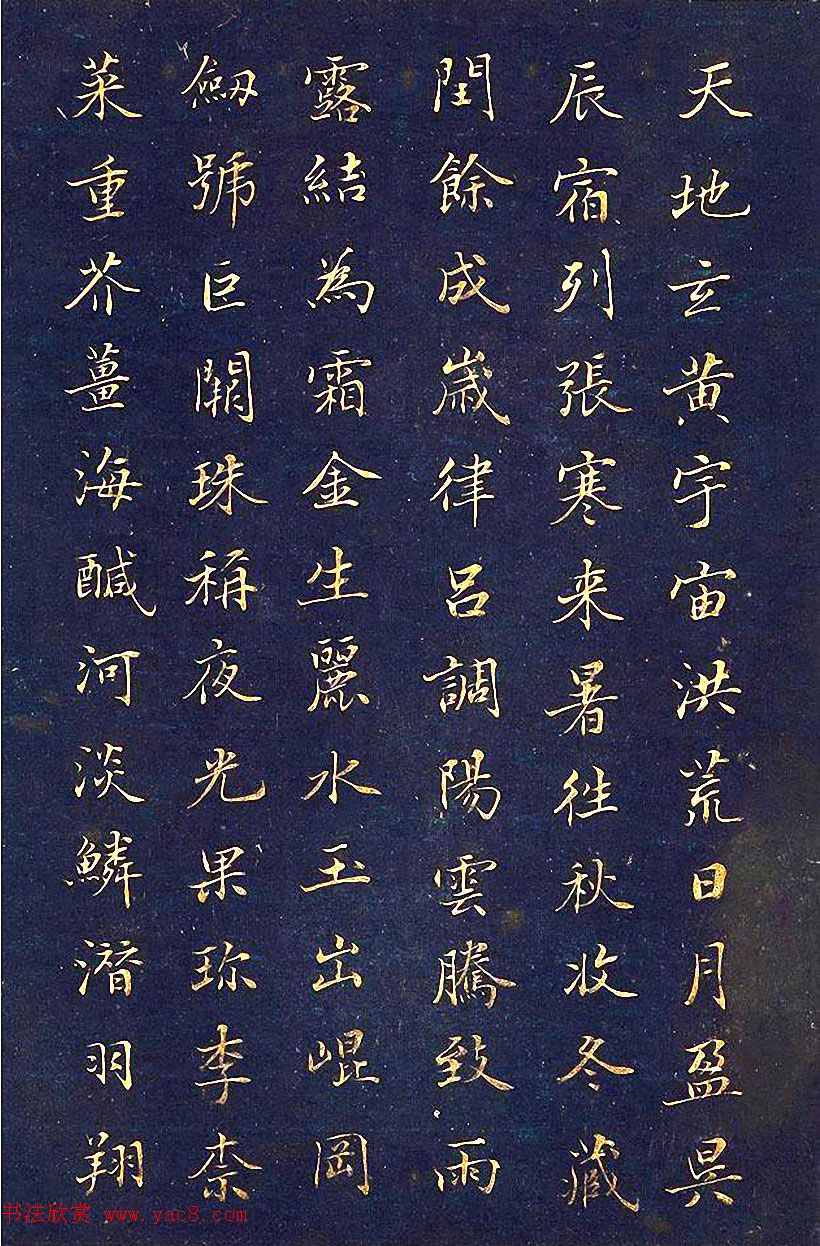 天地玄黃宇宙洪荒日月盈昃
辰宿列張寒来暑往秋收冬藏
閏餘成歲律呂調陽雲騰致雨
露結為霜金生麗水玉出崐岡
劒號巨闕珠稱夜光果珎李柰
菜重芥薑海醎河淡鱗潛羽翔
书法欣赏 www.yac8.com